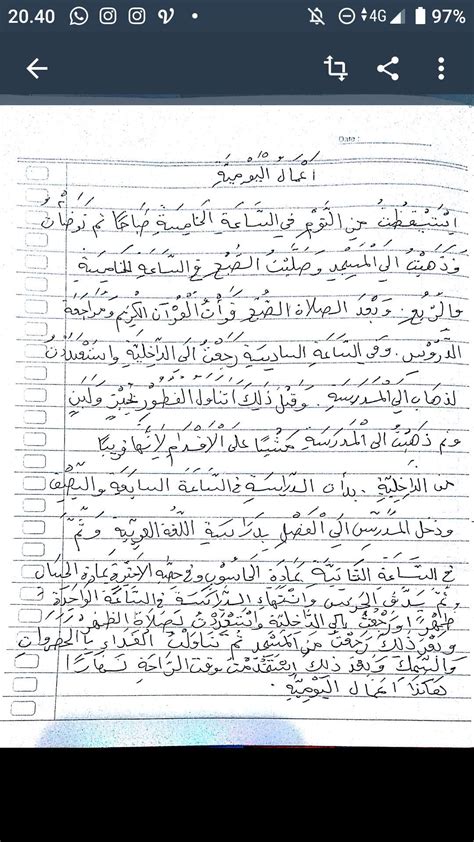 20.40 4G 97%
Date :
أعمال اليومية
استيقظت من النوم في الساعة الخامسة صباحا ثم توضأت
وذهبت الى المسجد وصليت الصبح في الساعة الخامسة
والربع. وبعد الصلاة الصبح قرأت القرآن الكريم ومراجعة
الدروس. وفي الساعة السادسة رجعت الى الداخلية واستعددت
لذهاب الى المدرسة. وقبل ذلك اتناول الفطور بخبز ولبن
وثم ذهبت الى المدرسة مشيا على الأقدام لأنها قريبا
من الداخلية. بدأت الدراسة في الساعة السابعة والنصف
ودخل المدرس الى الفصل بدراسة اللغة العربية وثم
في الساعة الثانية مادة الحاسوب وفي حصة الأخيرة مادة
وثم الجرس وانتهاء الدراسة في الساعة الواحدة
ظهرا ورجعت الى الداخلية واستعددت لصلاة الظهر
وبعد ذلك رجعت من المسجد ثم تناولت الغداء بالخضروات
والسمك وبعد ذلك وقت الراحة نهارا
هكذا أعمال اليومية.